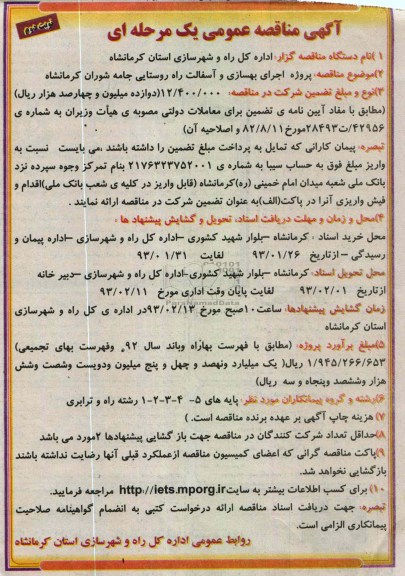 آگهی مناقصه عمومی یک مرحله ای
۱)نام دستگاه مناقصه گزار: اداره کل راه و شهرسازی استان کرمانشاه
۲)موضوع مناقصه: پروژه اجرای بهسازی و آسفالت راه روستایی جامه شوران کرمانشاه
۳)نوع و مبلغ تضمین شرکت در مناقصه: ۱۲/۴۰۰/۰۰۰(دوازده میلیون و چهارصد هزار ریال)
(مطابق با مفاد آیین نامه ی تضمین برای معاملات دولتی مصوبه ی هیأت وزیران به شماره ی
۴۲۹۵۶/ت۲۸۴۹۳مورخ۸۲/۸/۱۱ و اصلاحیه آن)
تبصره: پیمان کارانی که تمایل به پرداخت مبلغ تضمین را داشته باشند ،می بایست نسبت به
واریز مبلغ فوق به حساب سیبا به شماره ی ۲۱۷۶۴۳۳۷۵۲۰۰۱ بنام تمرکز وجوه سپرده نزد
بانک ملی شعبه میدان امام خمینی (ره)کرمانشاه (قابل واریز در کلیه ی شعب بانک ملی)اقدام و
فیش واریزی آنرا در پاکت(الف)به عنوان تضمین شرکت در مناقصه ارائه نمایند .
۴)محل و زمان و مهلت دریافت اسناد، تحویل و گشایش پیشنهاد ها :
محل خرید اسناد : کرمانشاه –بلوار شهید کشوری –اداره کل راه و شهرسازی –اداره پیمان و
رسیدگی – ازتاریخ ۹۳/۰۱/۲۶ لغایت ۹۳/۰۱/۳۱
محل تحویل اسناد: کرمانشاه –بلوار شهید کشوری–اداره کل راه و شهرسازی –دبیر خانه
ازتاریخ ۹۳/۰۲/۰۱ لغایت پایان وقت اداری مورخ ۹۳/۰۲/۱۱
زمان گشایش پیشنهادها: ساعت ۱۰صبح مورخ ۹۳/۰۲/۱۳در اداره ی کل راه و شهرسازی
استان کرمانشاه
۵)مبلغ برآورد پروژه: (مطابق با فهرست بهاراه وباند سال ۹۲ وفهرست بهای تجمیعی)
۱/۹۴۵/۲۶۶/۶۵۳ ریال( یک میلیارد ونهصد و چهل و پنج میلیون ودویست وشصت وشش
هزار وششصد وپنجاه و سه ریال)
۶)رشته و گروه پیمانکاران مورد نظر: پایه های ۵- ۴-۳-۲-۱ رشته راه و ترابری
۷) هزینه چاپ آگهی بر عهده برنده مناقصه است. )
۸)حداقل تعداد شرکت کنندگان در مناقصه جهت باز گشایی پیشنهادها ۲مورد می باشد
۹)پاکت مناقصه گرانی که اعضای کمیسیون مناقصه ازعملکرد قبلی آنها رضایت نداشته باشند
بازگشایی نخواهد شد.
۱۰) برای کسب اطلاعات بیشتر به سایت http://iets.mporg.ir مراجعه فرمایید.
تبصره: جهت دریافت اسناد مناقصه ارائه درخواست کتبی به انضمام گواهینامه صلاحیت
پیمانکاری الزامی است.
روابط عمومی اداره کل راه و شهرسازی استان کرمانشاه